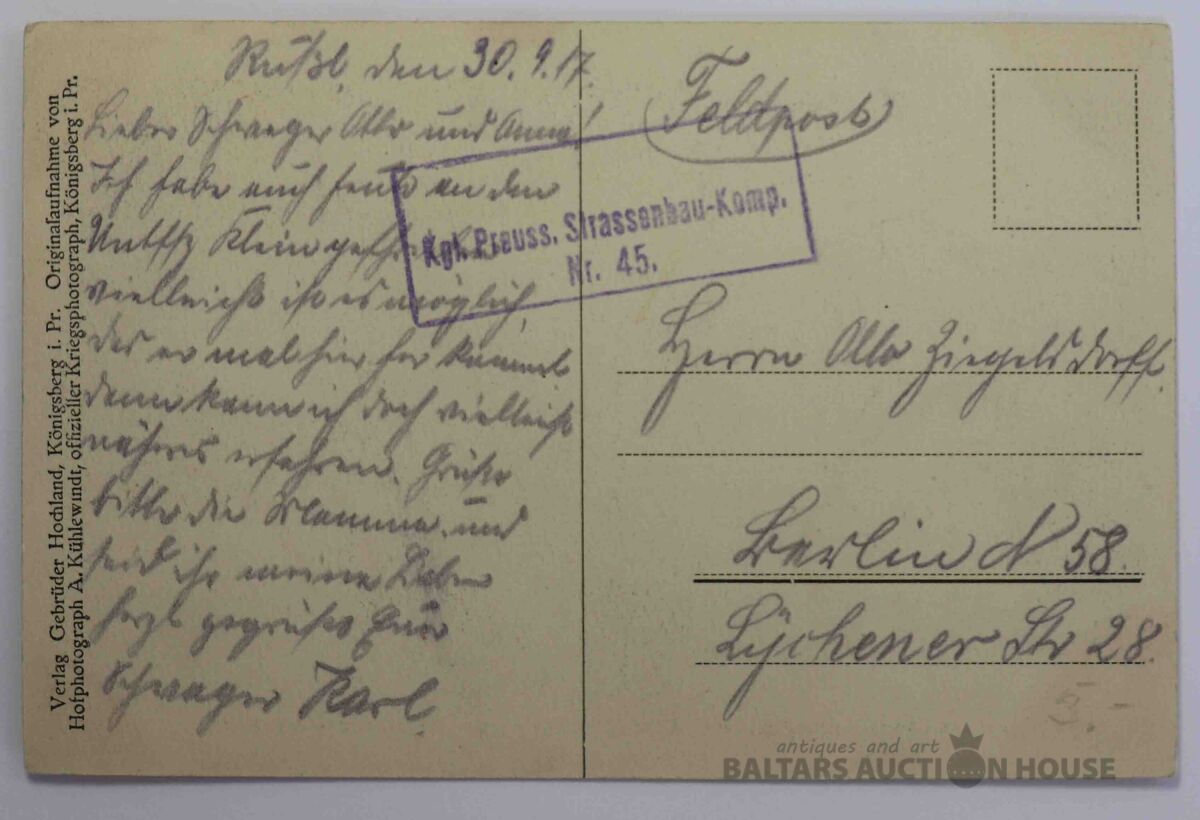 Rußl. den 30.9.17.
Lieber Schwager Otto und Anna!
Ich habe auch heute an den
Klein geschrieben
vielleicht ist es möglich,
das er mal hier her kommt
dann kann ich doch vielleicht
näheres erfahren. Grüße
bitte die Mamma und
seid ihr meine Lieben
herzl. gegrüßt Euer
Schwager Karl.
Feldpost
Kgl. Preuss. Strassenbau-Komp.
Nr. 45.
Herrn Otto Ziegelsdorff.
Berlin N 58.
Lychener Str 28.
5.-
Verlag Gebrüder Hochland, Königsberg i. Pr. Originalaufnahme von
Hofphotograph A. Kühlewindt, offizieller Kriegsphotograph, Königsberg i. Pr.
antiques and art
BALTARS AUCTION HOUSE